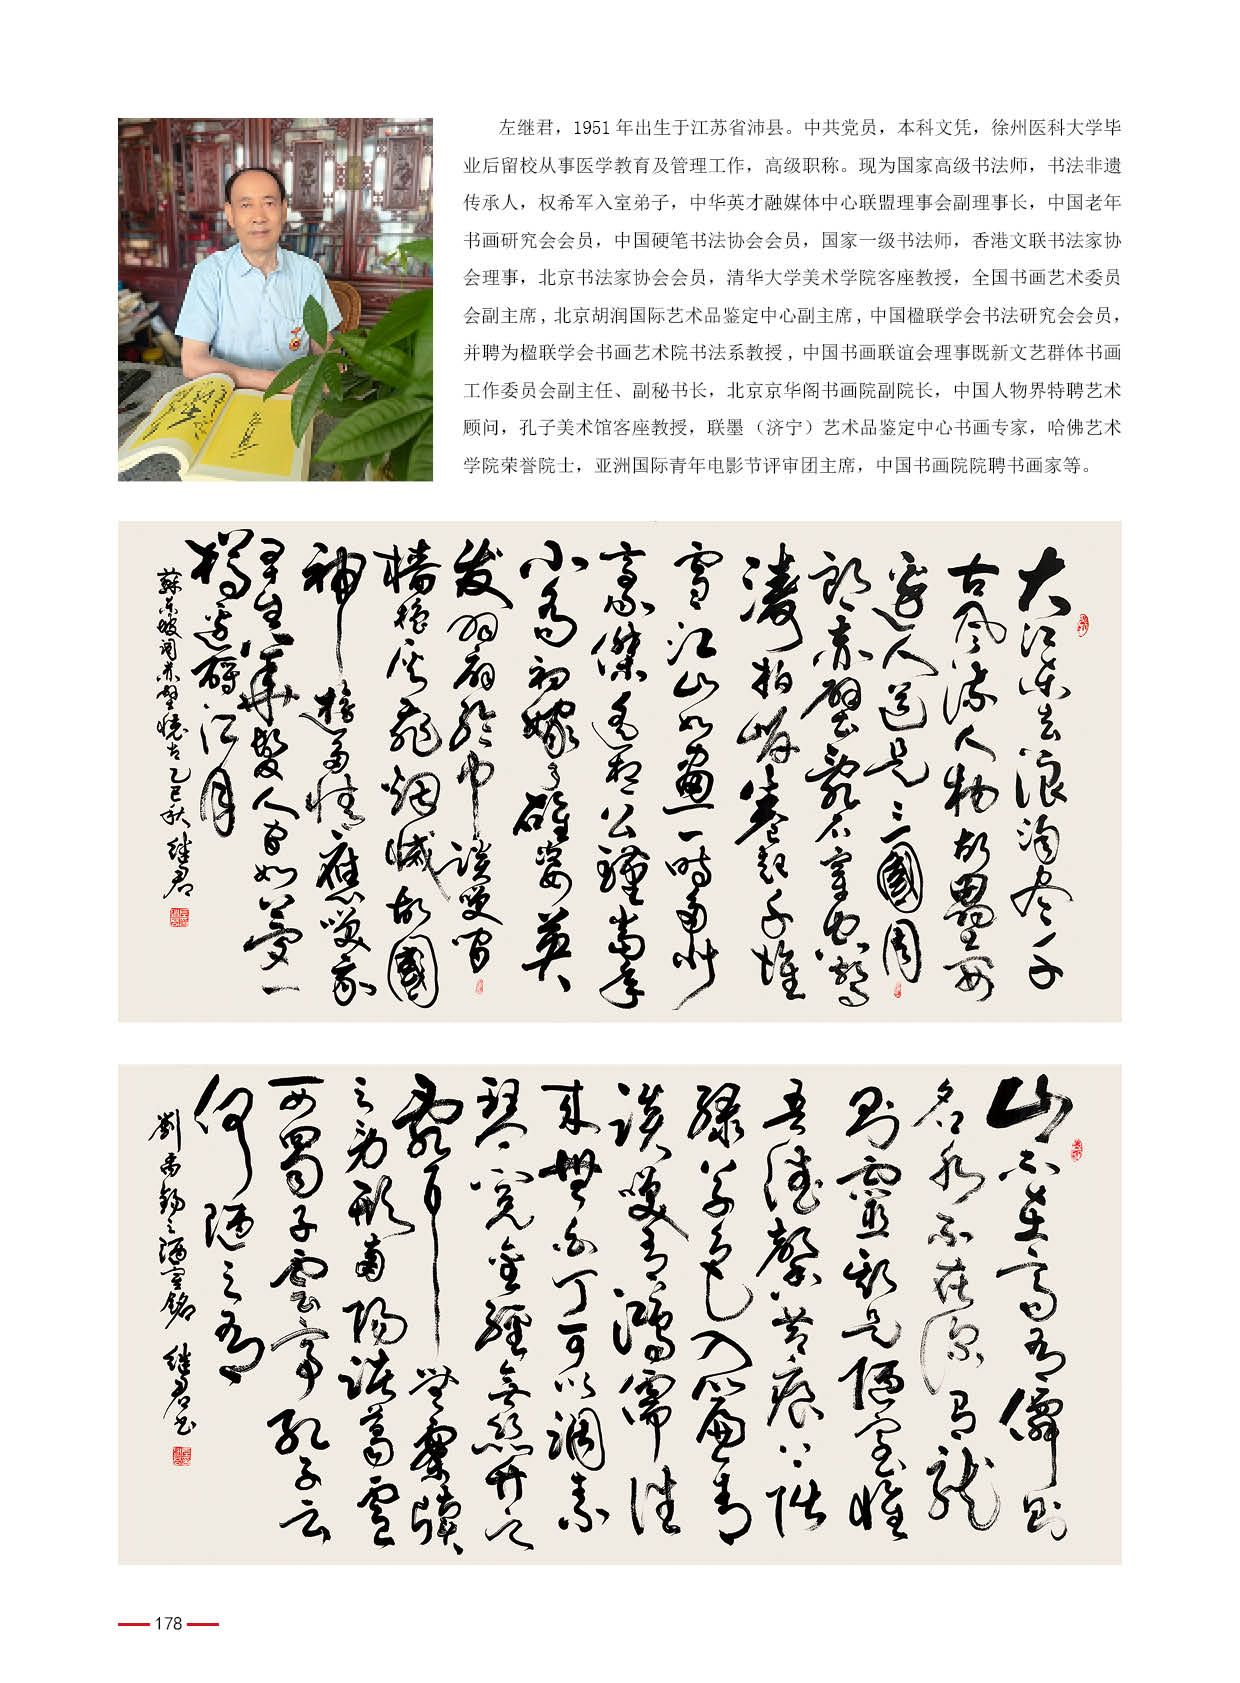 左继君，1951 年出生于江苏省沛县。中共党员，本科文凭，徐州医科大学毕
业后留校从事医学教育及管理工作，高级职称。现为国家高级书法师，书法非遗
传承人，权希军入室弟子，中华英才融媒体中心联盟理事会副理事长，中国老年
书画研究会会员，中国硬笔书法协会会员，国家一级书法师，香港文联书法家协
会理事，北京书法家协会会员，清华大学美术学院客座教授，全国书画艺术委员
会副主席，北京胡润国际艺术品鉴定中心副主席，中国楹联学会书法研究会会员，
并聘为楹联学会书画艺术院书法系教授，中国书画联谊会理事既新文艺群体书画
工作委员会副主任、副秘书长，北京京华阁书画院副院长，中国人物界特聘艺术
顾问，孔子美术馆客座教授，联墨（济宁）艺术品鉴定中心书画专家，哈佛艺术
学院荣誉院士，亚洲国际青年电影节评审团主席，中国书画院院聘书画家等。
大江东去浪淘尽千
古风流人物故壘西
邊人道是三國周
郎赤壁亂石穿空驚
濤拍岸卷起千堆
雪江山如畫一時多少
豪傑遥想公瑾當年
小喬初嫁了雄姿英
发羽扇纶巾谈笑间
檣櫓灰飛烟滅故國
神遊多情應笑我
早生華髮人间如夢一
樽還酹江月
蘇东坡词赤壁懷古乙巳秋 继君
山不在高有僊则
名水不在深有龙
则靈斯是陋室惟
吾德馨苔痕上阶
绿草色入簾青
谈笑有鴻儒往
来無白丁可以調素
琴阅金經無絲竹之
亂耳無案牘
之劳形南陽諸葛廬
西蜀子雲亭孔子云
何陋之有
劉禹锡之陋室銘 继君书
178